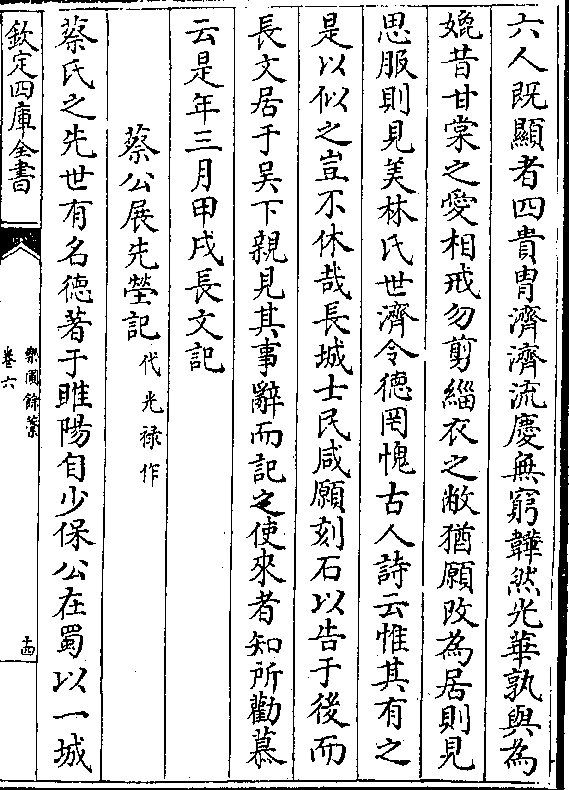 六人既顯者四貴胄濟濟流慶無窮韡然光華孰與為
媲昔甘棠之愛相戒勿剪緇衣之敝猶願改為居則見
思服則見美林氏世濟令德罔愧古人詩云惟其有之
是以似之豈不休哉長城士民咸願刻石以告于後而
長文居于吴下親見其事辭而記之使來者知所勸慕
云是年三月甲戌長文記
蔡公展先塋記代光禄作
蔡氏之先世有名徳著于睢陽自少保公在蜀以一城
欽定四庫全書
樂圃餘藁
卷六
十四